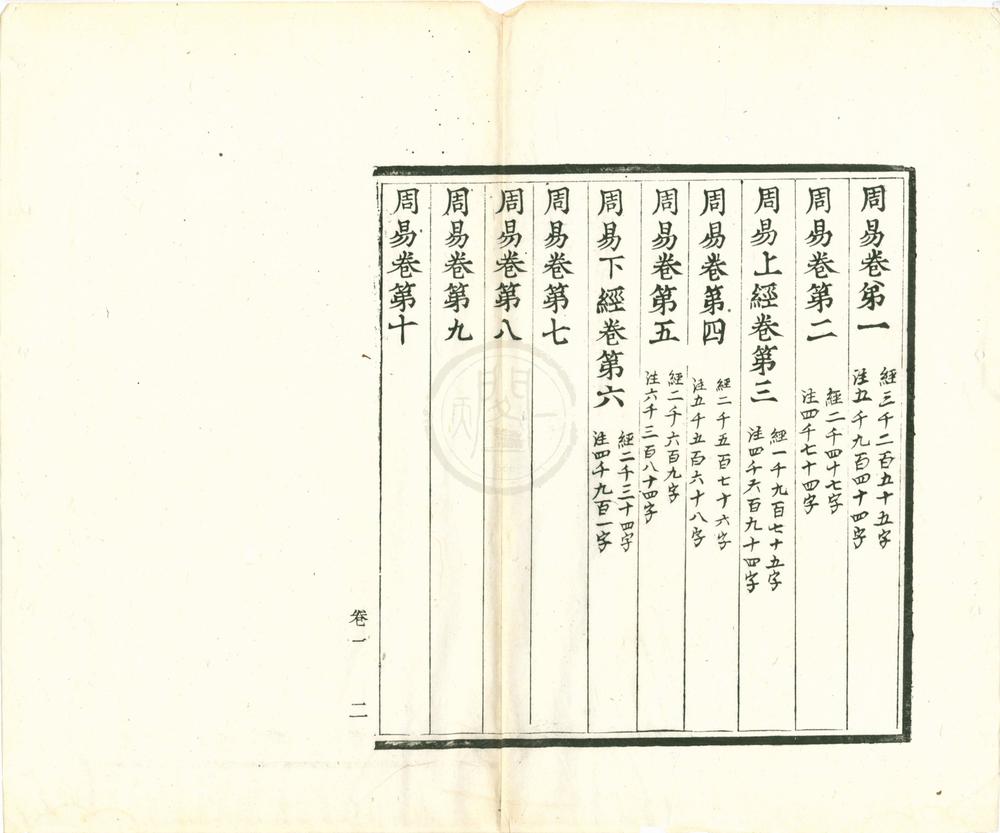 周易卷第一
經三千二百五十五字
注五千九百四十四字
周易卷第二
經二千四十七字
注四千七十四字
周易上經卷第三
經一千九百七十五字
注四千六百九十四字
周易卷第四
經二千五百七十六字
注五千五百六十八字
周易卷第五
經二千六百九字
注六千三百八十四字
周易下經卷第六
經二千三十四字
注四千九百一字
周易卷第七
周易卷第八
周易卷第九
周易卷第十
卷一
二